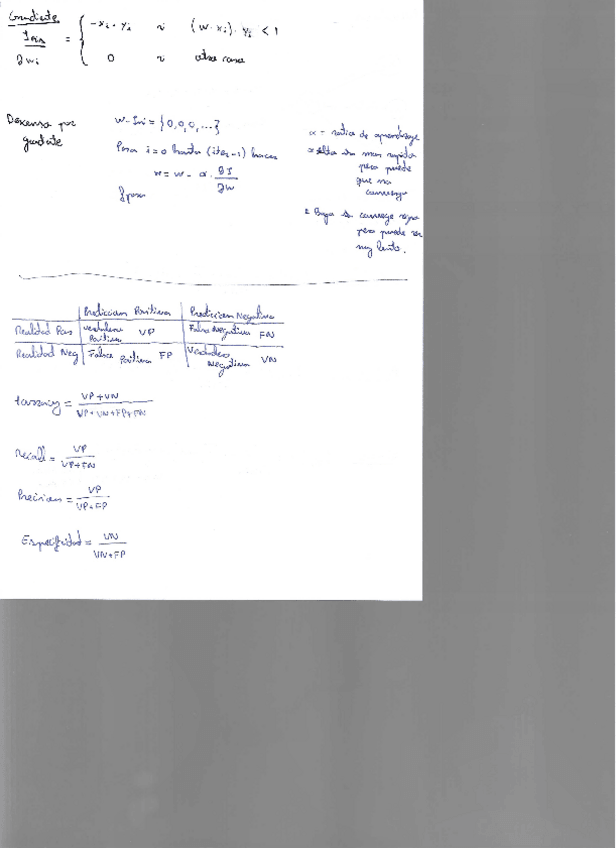 Gradiente
∂wi = { -xi · yi si (w · xi) · yi < 1
0 si otro caso
Descenso por gradiente
w-Ini = {0,0,0,...}
Para i=0 hasta (iter-1) hacer
w = w - α · ∂J/∂w
fpara
α = ratio de aprendizaje
alta más rápido
pero puede
que no
converga
Baja se converge
pero puede ser
muy lento.
Prediccion Positiva Prediccion Negativa
Realidad Pos Verdadero Positivo VP Falso Negativo FN
Realidad Neg Falso Positivo FP Verdadero Negativo VN
= VP+VN / VP+VN+FP+FN
Recall = VP / VP+FN
Precision = VP / VP+FP
Especifidad = VN / VN+FP